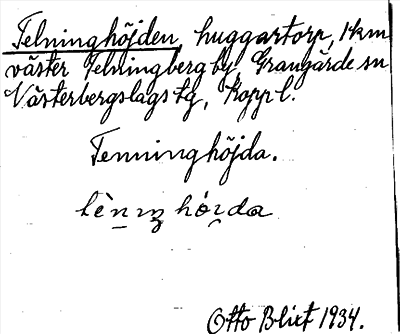 Telninghöjden, huggartorp, 1 km
väster Telningberg by, Grangärde sn
Västerbergslags tg, Kopp l.
Tenninghöjda.
Otto Blixt 1934.